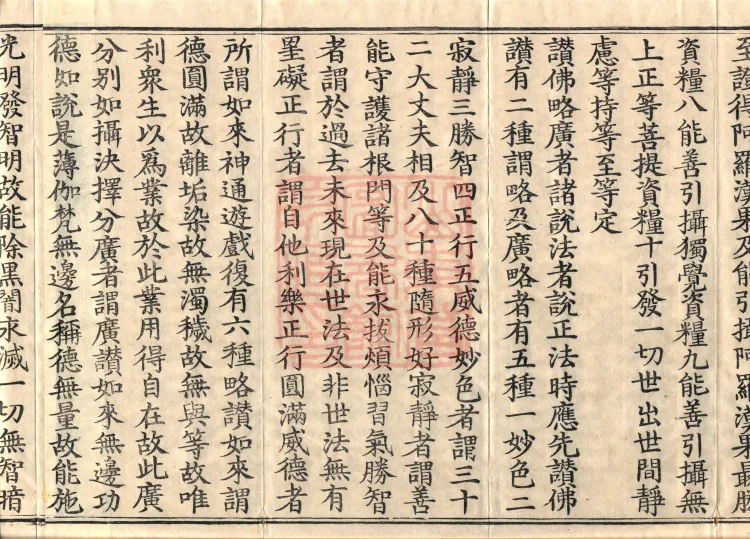 至證得阿羅漢果及能引攝阿羅漢果最勝
資糧八能善引攝獨覺資糧九能善引攝無
上正等菩提資糧十引發一切世出世間靜
慮等持等至等定
讚佛略廣者諸說法者說正法時應先讚佛
讚有二種謂略及廣略者有五種一妙色二
寂靜三勝智四正行五威德妙色者謂三十
二大丈夫相及八十種隨形好寂靜者謂善
能守護諸根門等及能永拔煩惱習氣勝智
者謂於過去未來現在世法及非世法無有
罣礙正行者謂自他利樂正行圓滿威德者
所謂如來神通遊戲復有六種略讚如來謂
德圓滿故離垢染故無濁穢故無與等故唯
利衆生以爲業故於此業用得自在故此廣
分別如攝決擇分廣者謂廣讚如來無邊功
德如說是薄伽梵無邊名稱德無量故能施
光明發智明故能除黑闇永滅一切無智暗